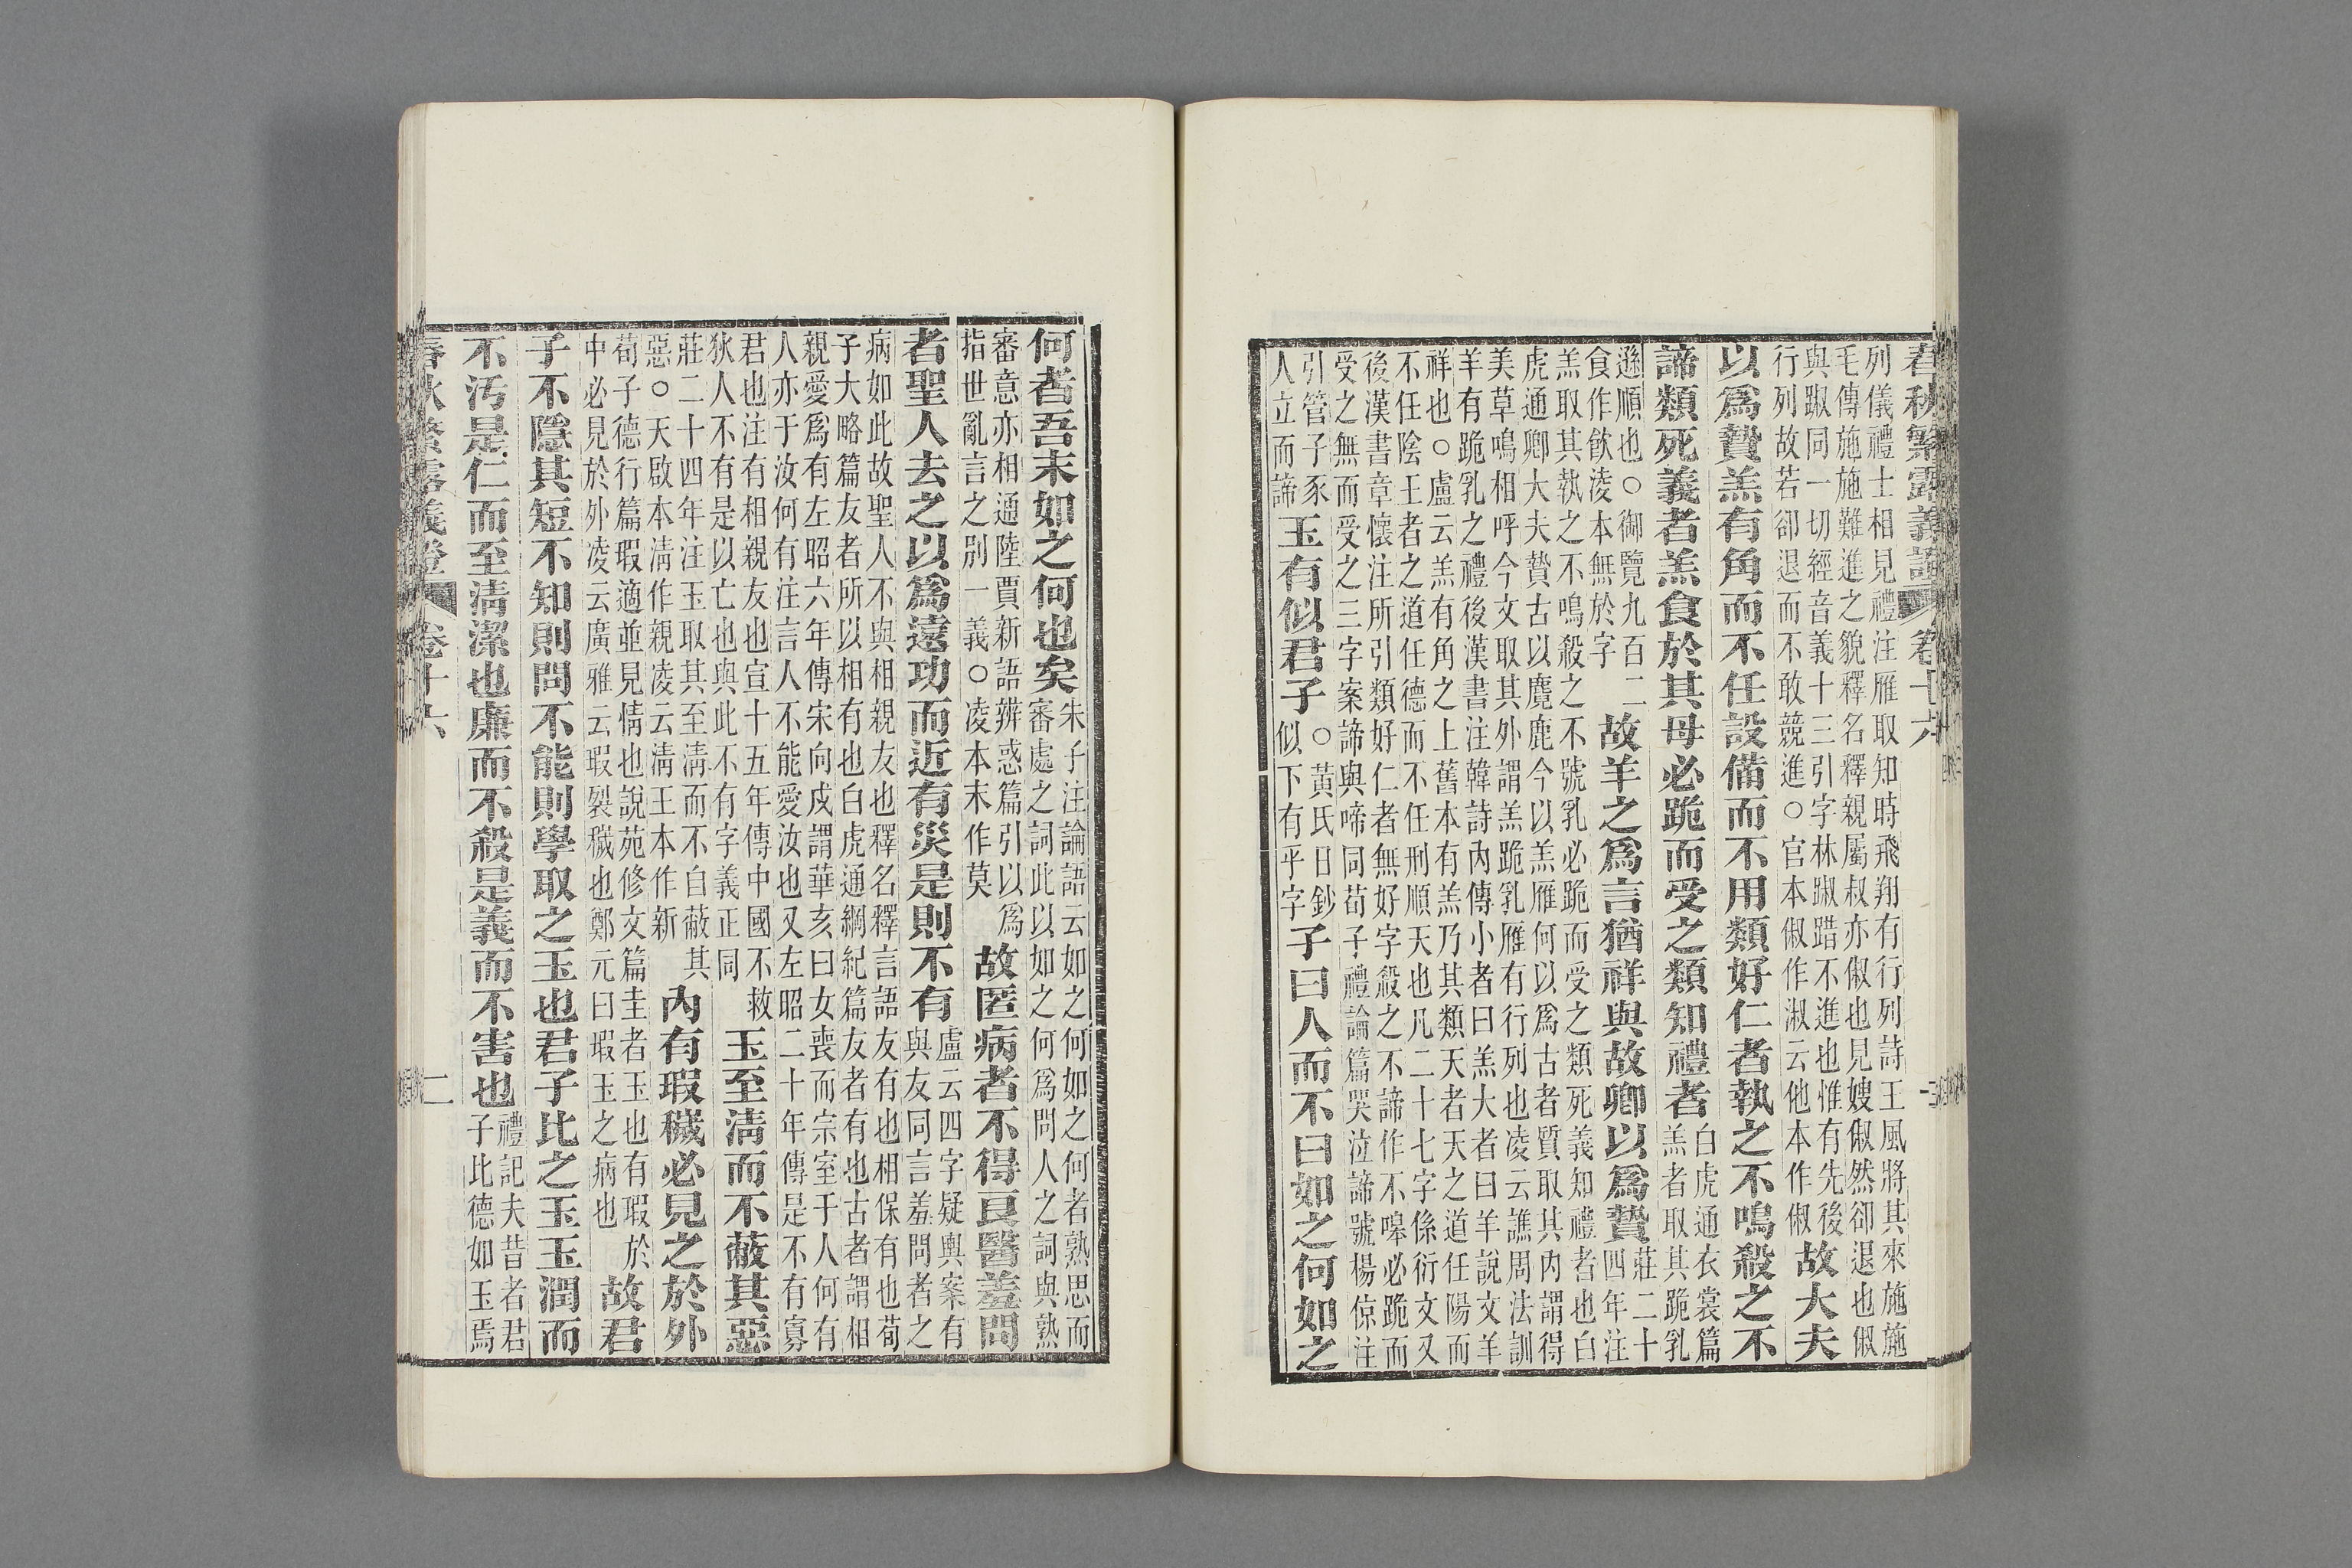 春秋繁露義證 卷十六
列儀禮士相見禮注雁取知時飛翔有行列詩王風將其來施施
毛傳施施難進之貌釋名釋親屬叔亦俶也見嫂俶然卻退也俶
與踧同一切經音義十三引字林踧踖不進也惟有先後
行列故若卻退而不敢競進○官本俶作淑云他本作俶
故大夫
以爲贄羔有角而不任設備而不用類好仁者執之不鳴殺之不
諦類死義者羔食於其母必跪而受之類知禮者
白虎通衣裳篇
羔者取其跪乳
遜順也○御覽九百二
食作飮淩本無於字
故羊之爲言猶祥與故卿以爲贄
莊二十
四年注
羔取其執之不鳴殺之不號乳必跪而受之類死義知禮者也白
虎通卿大夫贄古以麑鹿今以羔雁何以爲古者質取其內謂得
美草鳴相呼今文取其外謂羔跪乳雁有行列也凌云譙周法訓
羊有跪乳之禮後漢書注韓詩內傳小者曰羔大者曰羊說文羊
祥也○盧云羔有角之上舊本有羔乃其類天者天之道任陽而
不任陰王者之道任德而不任刑順天也凡二十七字係衍文又
後漢書章懷注所引類好仁者無好字殺之不諦作不嘷必跪而
受之無而受之三字案諦與啼同荀子禮論篇哭泣諦號楊倞注
引管子豕
人立而諦
玉有似君子
○黃氏日鈔
似下有乎字
子曰人而不曰如之何如之
何者吾末如之何也矣
朱子注論語云如之何如之何者熟思而
審處之詞此以如之何爲問人之詞與熟
審意亦相通陸賈新語辨惑篇引以爲
指世亂言之別一義○凌本末作莫
故匿病者不得良醫羞問
者聖人去之以爲遠功而近有災是則不有
盧云四字疑輿案有
與友同言羞問者之
病如此故聖人不與相親友也釋名釋言語友有也相保有也荀
子大略篇友者所以相有也白虎通綱紀篇友者有也古者謂相
親愛爲有左昭六年傳宋向戌謂華亥曰女喪而宗室于人何有
人亦于汝何有注言人不能愛汝也又左昭二十年傳是不有寡
君也注有相親友也宣十五年傳中國不救
狄人不有是以亡也與此不有字義正同
玉至清而不蔽其惡
莊二十四年注玉取其至清而不自蔽其
惡○天啟本清作親凌云清王本作新
內有瑕穢必見之於外
荀子德行篇瑕適並見情也說苑修文篇圭者玉也有瑕於
中必見於外凌云廣雅云瑕裂穢也鄭元曰瑕玉之病也
故君
子不隱其短不知則問不能則學取之玉也君子比之玉玉潤而
不汚是仁而至清潔也廉而不殺是義而不害也
禮記夫昔者君
子比德如玉焉
春秋繁露義證 卷十六 二